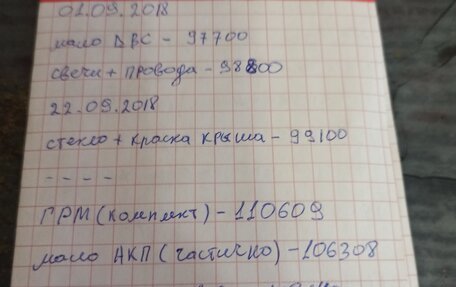 01.09.2018
масло ДВС - 97700
свечи + провода - 98800
22.09.2018
стекло + краска крыша - 99100
- - - -
ГРМ (комплект) - 110609
масло АКП (частично) - 106308